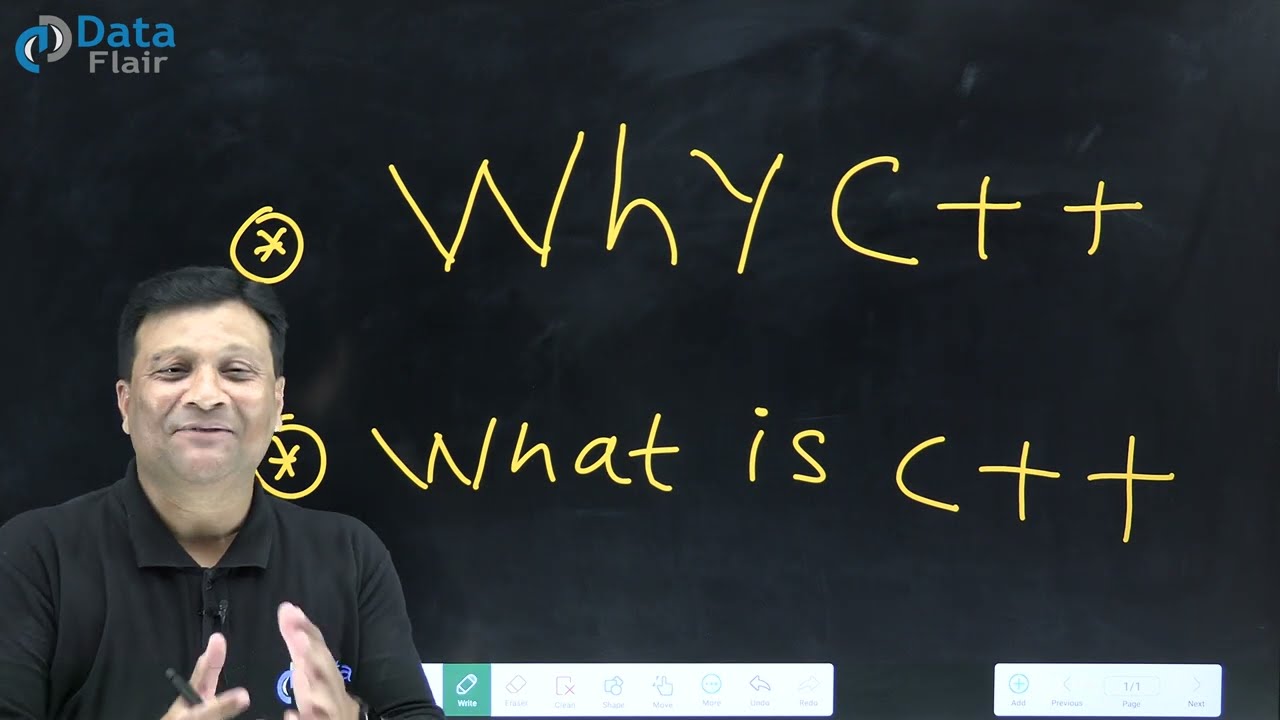 Data
Flair
* Why C++
* What is C++
Write
Eraser
Clean
Shape
Move
More
Undo
Redo
Add
Previous
1/1
Page
Next